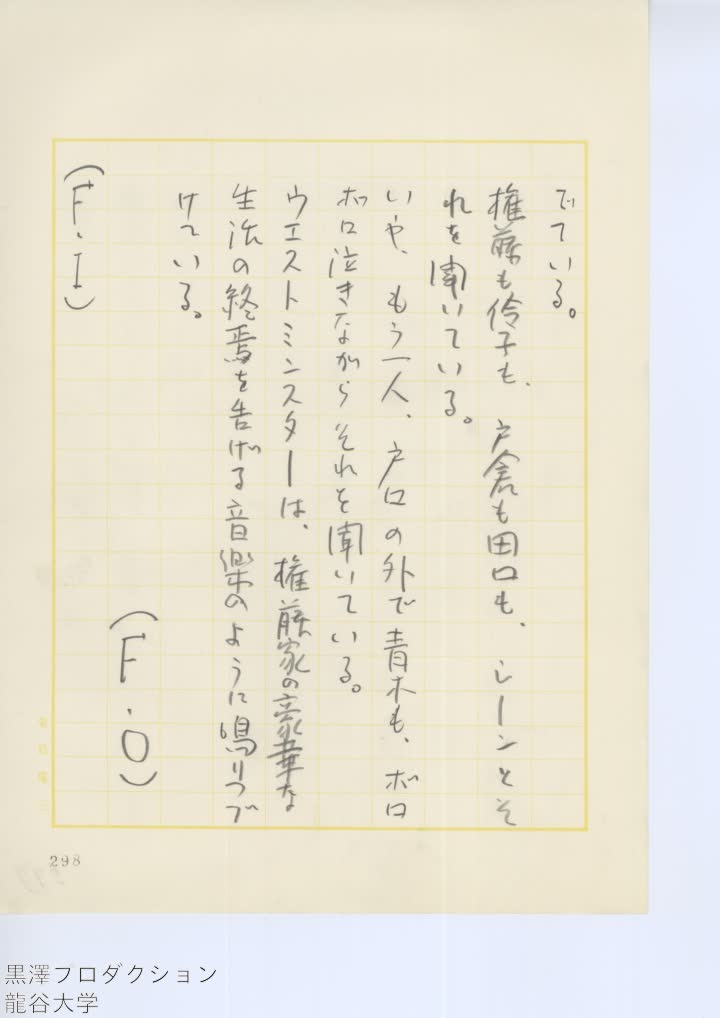 でている。
権藤も伶子も、戸倉も田口も、シーンとそ
れを聞いている。
いや、もう一人、戸口の外で青木も、ボロ
ボロ泣きながらそれを聞いている。
ウエストミンスターは、権藤家の豪華な
生活の終焉を告げる音楽のように鳴りつゞ
けている。
(F・O)
(F・I)
298
黒澤プロダクション
龍谷大学